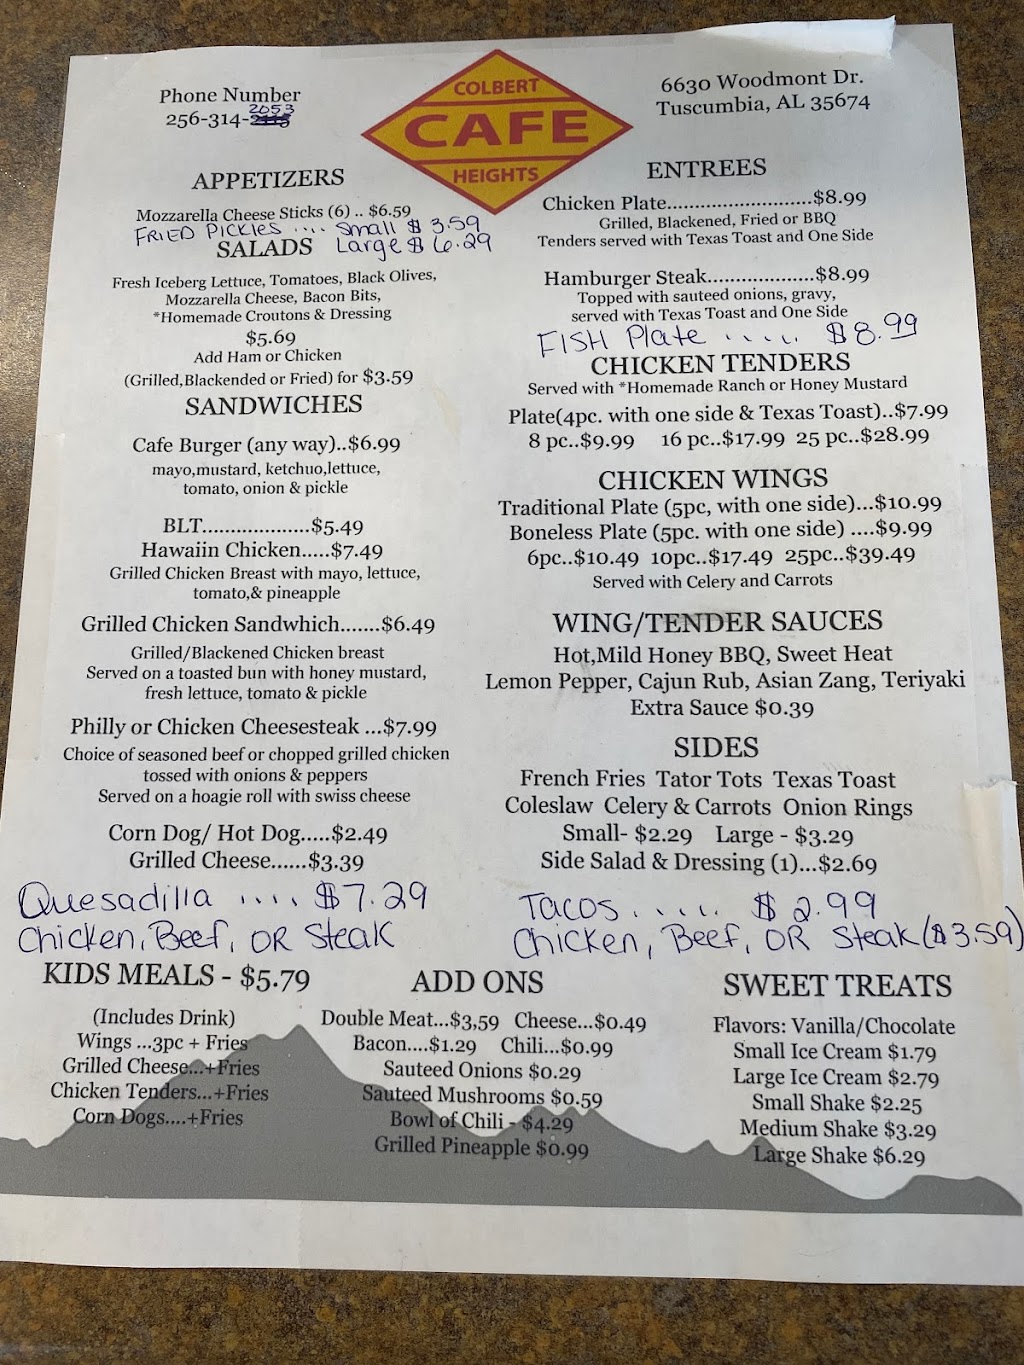 Phone Number
256-314-2053
COLBERT
CAFE
HEIGHTS
6630 Woodmont Dr.
Tuscumbia, AL 35674
APPETIZERS
Mozzarella Cheese Sticks (6) .. $6.59
FRIED PICKLES .... Small $ 3.59
Large $ 6.29
SALADS
Fresh Iceberg Lettuce, Tomatoes, Black Olives,
Mozzarella Cheese, Bacon Bits,
*Homemade Croutons & Dressing
$5.69
Add Ham or Chicken
(Grilled,Blackended or Fried) for $3.59
SANDWICHES
Cafe Burger (any way)..$6.99
mayo,mustard, ketchuo,lettuce,
tomato, onion & pickle
BLT...................$5.49
Hawaiin Chicken.....$7.49
Grilled Chicken Breast with mayo, lettuce,
tomato,& pineapple
Grilled Chicken Sandwhich.......$6.49
Grilled/Blackened Chicken breast
Served on a toasted bun with honey mustard,
fresh lettuce, tomato & pickle
Philly or Chicken Cheesesteak ...$7.99
Choice of seasoned beef or chopped grilled chicken
tossed with onions & peppers
Served on a hoagie roll with swiss cheese
Corn Dog/ Hot Dog.....$2.49
Grilled Cheese......$3.39
Quesadilla .... $7.29
Chicken, Beef, OR Steak
ENTREES
Chicken Plate..........................$8.99
Grilled, Blackened, Fried or BBQ
Tenders served with Texas Toast and One Side
Hamburger Steak...................$8.99
Topped with sauteed onions, gravy,
served with Texas Toast and One Side
FISH Plate ..... $8.99
CHICKEN TENDERS
Served with *Homemade Ranch or Honey Mustard
Plate(4pc. with one side & Texas Toast)..$7.99
8 pc..$9.99 16 pc..$17.99 25 pc..$28.99
CHICKEN WINGS
Traditional Plate (5pc, with one side)...$10.99
Boneless Plate (5pc. with one side) ....$9.99
6pc..$10.49 10pc..$17.49 25pc..$39.49
Served with Celery and Carrots
WING/TENDER SAUCES
Hot,Mild Honey BBQ, Sweet Heat
Lemon Pepper, Cajun Rub, Asian Zang, Teriyaki
Extra Sauce $0.39
SIDES
French Fries Tator Tots Texas Toast
Coleslaw Celery & Carrots Onion Rings
Small- $2.29 Large - $3.29
Side Salad & Dressing (1)...$2.69
Tacos ..... $ 2.99
Chicken, Beef, OR Steak ($3.59)
KIDS MEALS - $5.79
(Includes Drink)
Wings ...3pc + Fries
Grilled Cheese...+Fries
Chicken Tenders...+Fries
Corn Dogs....+Fries
ADD ONS
Double Meat...$3,59 Cheese...$0.49
Bacon....$1.29 Chili...$0.99
Sauteed Onions $0.29
Sauteed Mushrooms $0.59
Bowl of Chili - $4.29
Grilled Pineapple $0.99
SWEET TREATS
Flavors: Vanilla/Chocolate
Small Ice Cream $1.79
Large Ice Cream $2.79
Small Shake $2.25
Medium Shake $3.29
Large Shake $6.29